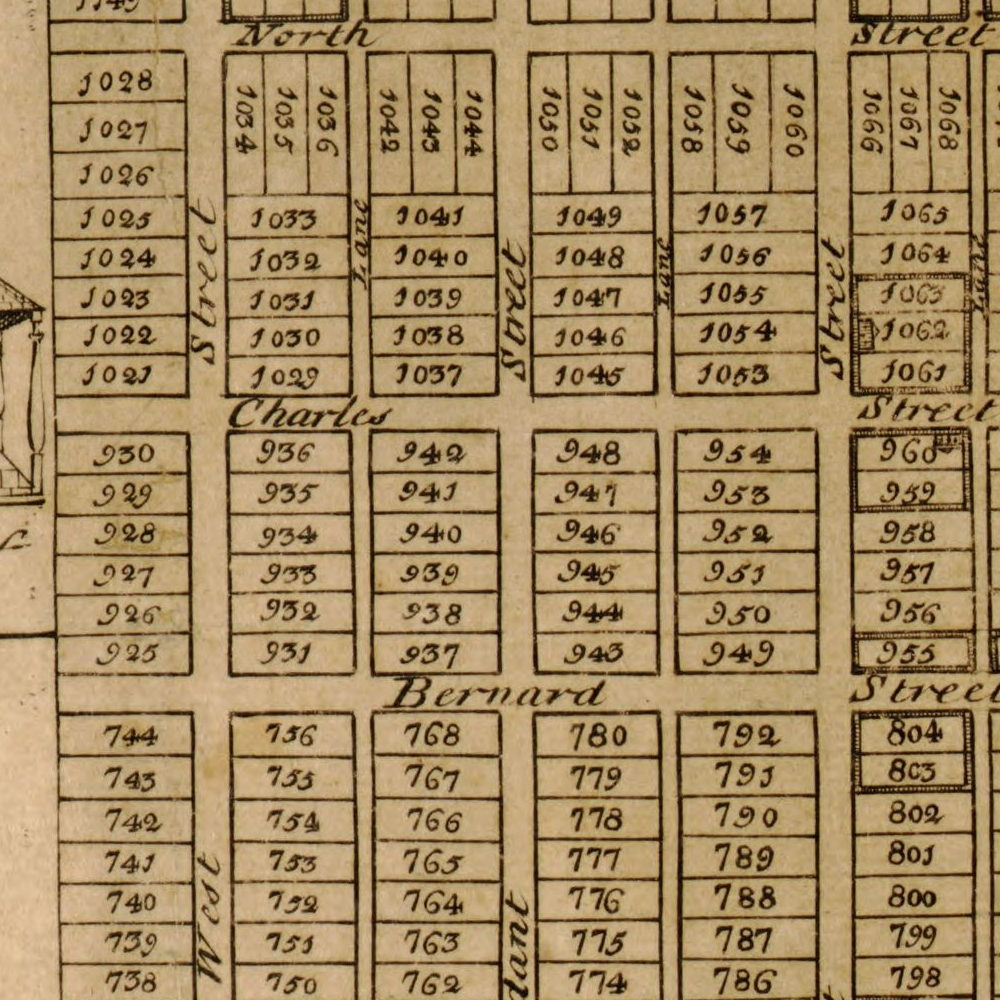 North Street
1028
1027
1026
1025
1024
1023
1022
1021
1034 1035 1036
1033
1032
1031
1030
1029
1042 1043 1044
1041
1040
1039
1038
1037
1050 1051 1052
1049
1048
1047
1046
1045
1058 1059 1060
1057
1056
1055
1054
1053
1066 1067 1068
1065
1064
1063
1062
1061
Street
Lane
Street
Lane
Street
Lane
Charles Street
930
929
928
927
926
925
936
935
934
933
932
931
942
941
940
939
938
937
948
947
946
945
944
943
954
953
952
951
950
949
960
959
958
957
956
955
Bernard Street
744
743
742
741
740
739
738
756
755
754
753
752
751
750
768
767
766
765
764
763
762
780
779
778
777
776
775
774
792
791
790
789
788
787
786
804
803
802
801
800
799
798
West
dant